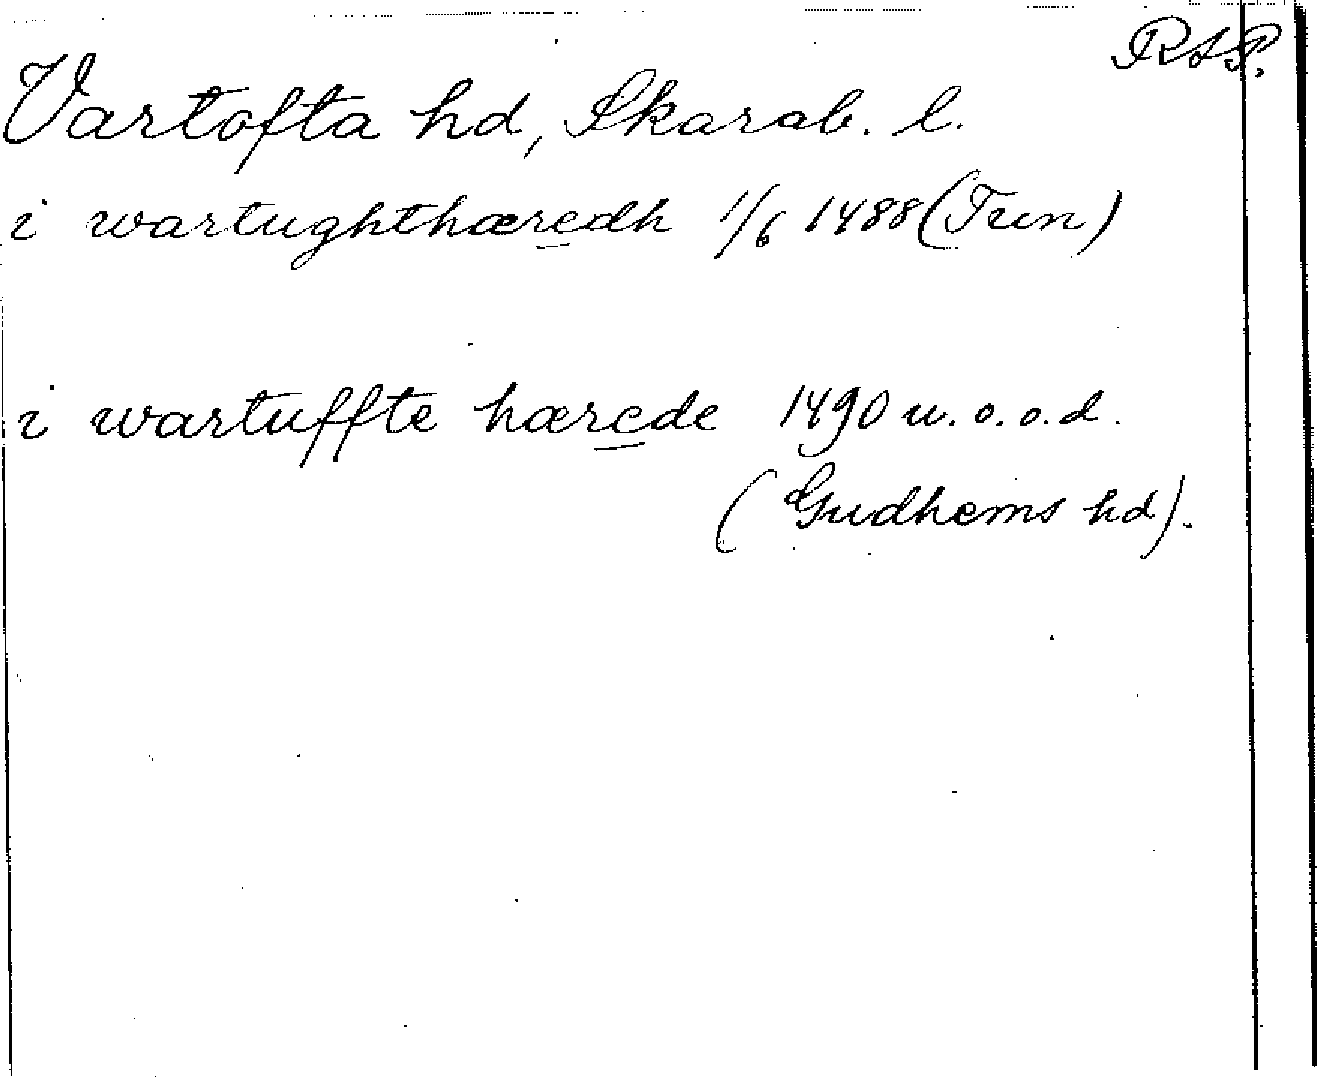 RAP.
Vartofta hd, Skarab. l.
i wartughthæredh 1/6 1488 (Tun)
i wartuffte hærede 1490 u.o.o.d.
(Gudhems hd).